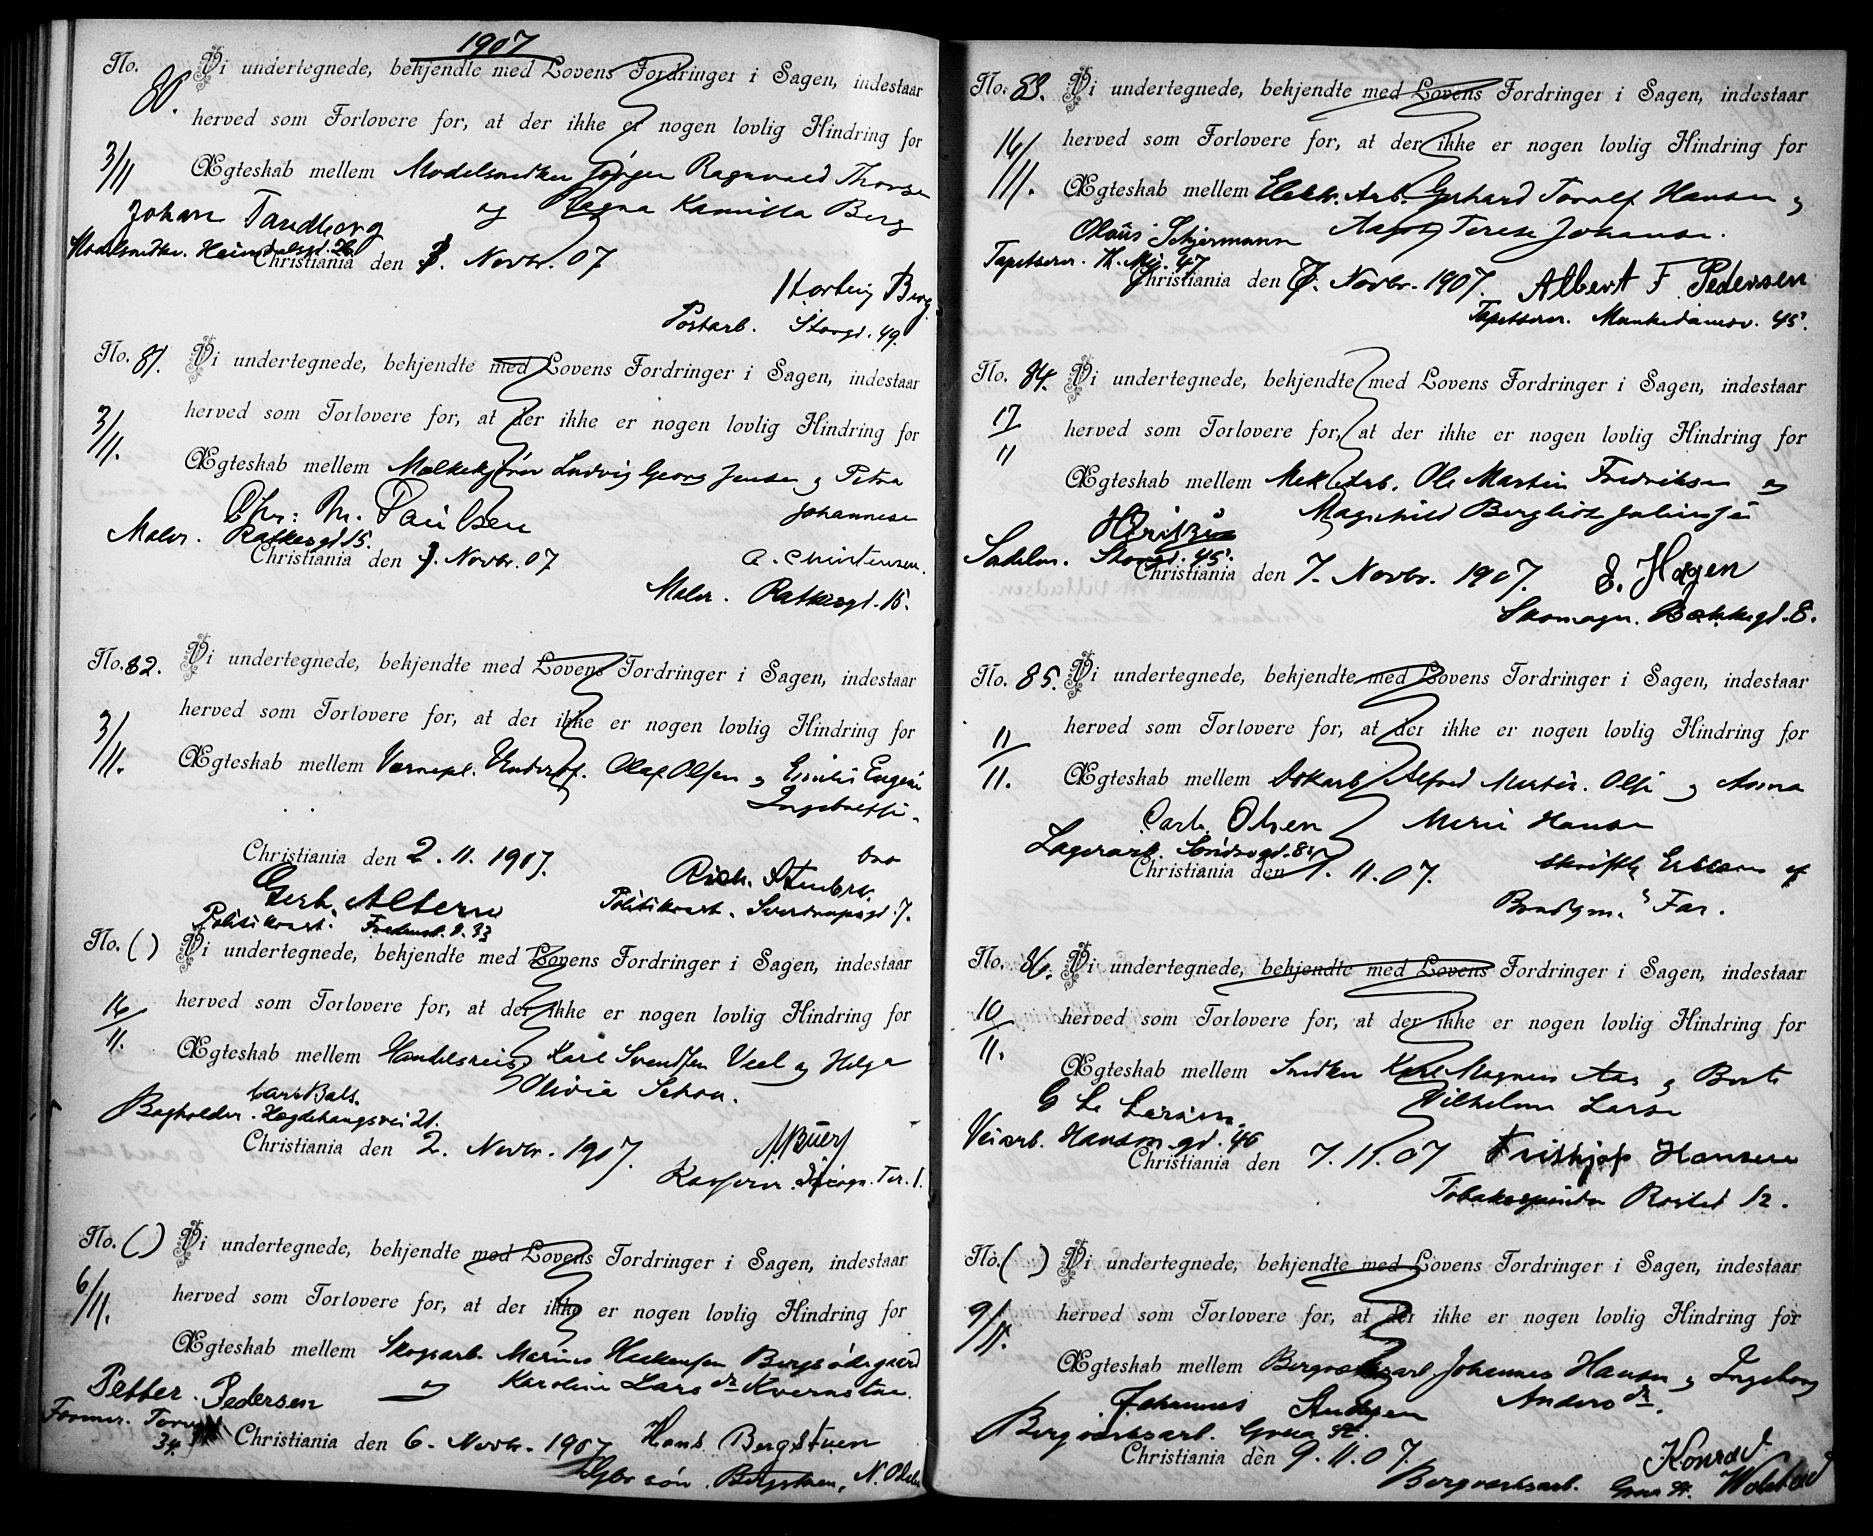 1907
No. 80. Vi undertegnede, bekjendte med Lovens Fordringer i Sagen, indestaar
herved som Forlovere for, at der ikke er nogen lovlig Hindring for
3/11 Ægteskab mellem Modelsnedker Jørgen Ragnvald Thorsen
og Ragna Kamilla Berg
Johan Tandberg
Modelsnedker. Heimdalsgd.
Christiania den 3. Novbr. 07
Hartvig Berg
Postarb. Storgd. 49.
No. 81. Vi undertegnede, bekjendte med Lovens Fordringer i Sagen, indestaar
herved som Forlovere for, at der ikke er nogen lovlig Hindring for
3/11. Ægteskab mellem Mælkekjører Ludvig Georg Jensen og Petra
Johannesen
Chr: M. Paulsen
Maler. Ratkesgd 15.
Christiania den 1. Novbr. 07
A. Christensen.
Maler. Ratkesgd. 15.
No. 82. Vi undertegnede, bekjendte med Lovens Fordringer i Sagen, indestaar
herved som Forlovere for, at der ikke er nogen lovlig Hindring for
3/11. Ægteskab mellem Vernepl. Underof. Olaf Olsen og Emilie Eugenie
Ingebretsen.
Christiania den 2. 11. 1907.
Gerh. Altern
Politikonst.
Rich. Stenbro
Politikonst. Sverdrupsgd. 7.
No. ( ) Vi undertegnede, bekjendte med Lovens Fordringer i Sagen, indestaar
herved som Forlovere for, at der ikke er nogen lovlig Hindring for
16/11. Ægteskab mellem Handelsreis. Karl Svendsen Veel og Helga
Olivia Schou.
Carl Bals.
Bogholder. Hægdehaugsvei 21.
Christiania den 2. Novbr. 1907.
Kasserer.
No. ( ) Vi undertegnede, bekjendte med Lovens Fordringer i Sagen, indestaar
herved som Forlovere for, at der ikke er nogen lovlig Hindring for
6/11. Ægteskab mellem Skogsarb. Marinus Haakensen Bergsødegaard
og Karoline Larsdr Kvernstuen.
Petter Pedersen
Former.
34.
Christiania den 6. Novbr. 1907
Hans Bergstuen
Gbr søn. Bergstuen, N. Odalen
No. 83. Vi undertegnede, bekjendte med Lovens Fordringer i Sagen, indestaar
herved som Forlovere for, at der ikke er nogen lovlig Hindring for
16/11. Ægteskab mellem Elektr. Arb. Gerhard Toralf Hansen og
Aagot Terese Johansen.
Olaus Schjermann
Tapetserer. Th. Mej. 47
Christiania den 7. Novbr. 1907.
Albert F. Pedersen
Tapetserer. Munkedamsv. 45.
No. 84. Vi undertegnede, bekjendte med Lovens Fordringer i Sagen, indestaar
herved som Forlovere for, at der ikke er nogen lovlig Hindring for
17/11 Ægteskab mellem Mek. Arb. Ole Martin Fredriksen og
Magnhild Bergliot
Sadelm. Storgd. 45.
Christiania den 7. Novbr. 1907.
E. Hagen
Skomager. Bækkegd. 8.
No. 85. Vi undertegnede, bekjendte med Lovens Fordringer i Sagen, indestaar
herved som Forlovere for, at der ikke er nogen lovlig Hindring for
11/11. Ægteskab mellem Dokarb. Alfred Martin Olsen og Anna
Marie Hansen
Carl. Olsen
Lagerarb.
Christiania den 7. 11. 07.
Skriftlig Erklæring af
Brudgm.s Far.
No. 86. Vi undertegnede, bekjendte med Lovens Fordringer i Sagen, indestaar
herved som Forlovere for, at der ikke er nogen lovlig Hindring for
10/11. Ægteskab mellem Snedker Karl Magnus Aas og Berta
Vilhelmine Larsen
G L Larsen
Veiarb. Hansm.gd. 46
Christiania den 7. 11. 07
Frithjof Hansen
Tobaksspinder Rostet 12.
No. ( ) Vi undertegnede, bekjendte med Lovens Fordringer i Sagen, indestaar
herved som Forlovere for, at der ikke er nogen lovlig Hindring for
9/11. Ægteskab mellem Bergværksarb. Johannes Hansen og Ingeborg
Andersdr.
Johannes Andersen
Bergværksarb. Grua St.
Christiania den 9. 11. 07.
Konrad Wolstad
Bergværksarb. Grua St.